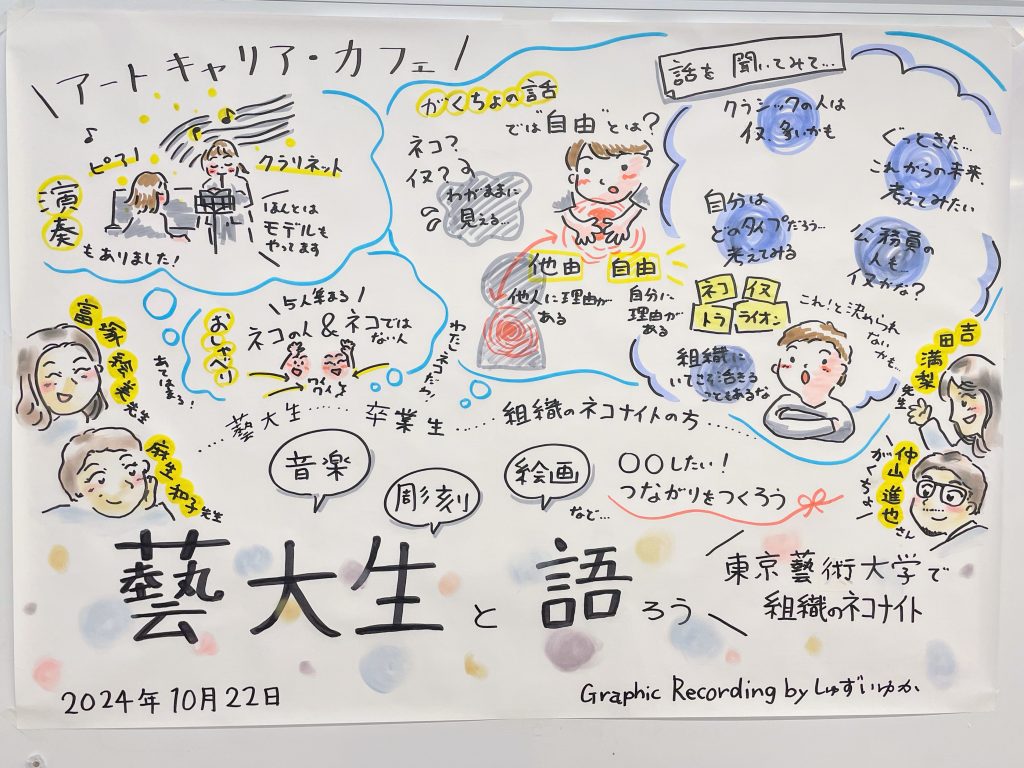 \アートキャリア・カフェ/
ピアノ
クラリネット
演奏
もありました!
ほんとは
モデルも
やってます
がくちょの話
では"自由"とは?
ネコ?
イヌ?
わがままに
見える…
他由
自由
他人に理由が
ある
自分に
理由が
ある
話を聞いてみて…
クラシックの人は
イヌ、多いかも
ぐっときた…
これからの未来、
考えてみたい
自分は
どのタイプだろう…
考えてみる
公務員の
人も…
イヌかな?
ネコ
イヌ
トラ
ライオン
これ!と決められ
ないかも…
組織に
いてこそ活きる
こともあるな
おしゃべり
\5人集まる/
ネコの人&ネコでは
ない人
ワイワイ
わたしネコだわ!
あてはまる!
先生
麻生和子先生
吉田満梨先生
がくちょ
仲山進也さん
…藝大生……卒業生…組織のネコナイトの方……
音楽
彫刻
絵画
など…
〇〇したい!
つながりをつくろう
藝大生と語ろう
東京藝術大学で
組織のネコナイト
2024年10月22日
Graphic Recording by しゅずいゆか